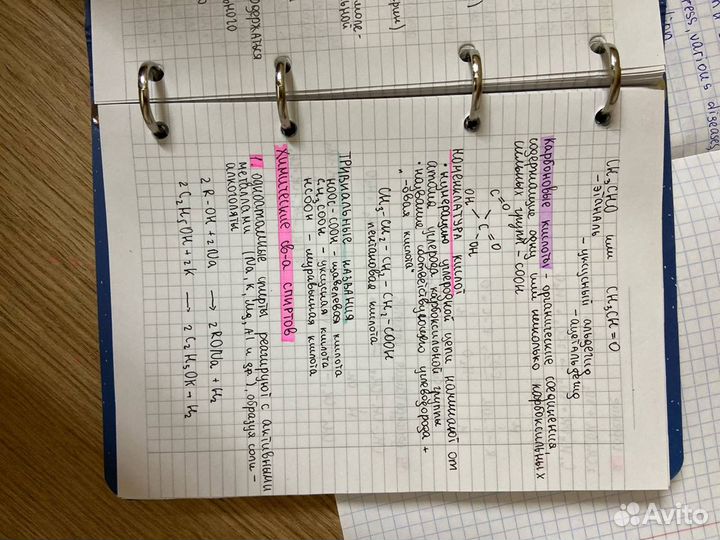 CH₃CHO или CH₃CH=O
- этаналь - уксусный альдегид
- ацетальдегид
карбоновые кислоты органические соединения,
содержащие одну или несколько карбоксильных
групп - COOH
O
C
OH
C
O
OH
номенклатура кислот
• нумерацию углеродной цепи начинают от
атома углерода карбоксильной группы
• название соответствующего углеводорода +
"-овая кислота"
CH₃-CH₂-CH₂-CH₂-COOH
пентановая кислота
тривиальные названия
HOOC-COOH - щавелевая кислота
CH₃COOH - уксусная кислота
HCOOH - муравьиная кислота
Химические св-а спиртов
1. одноатомные спирты реагируют с активными
металлами (Na, K, Mg, Al и др.), образуя соли -
алкоголяты
2 R-OH + 2 Na → 2 RONa + H₂
2 C₂H₅OH + 2 K → 2 C₂H₅OK + H₂
одержаться
ного
льной
рин)
ress, various diseases,
Avito